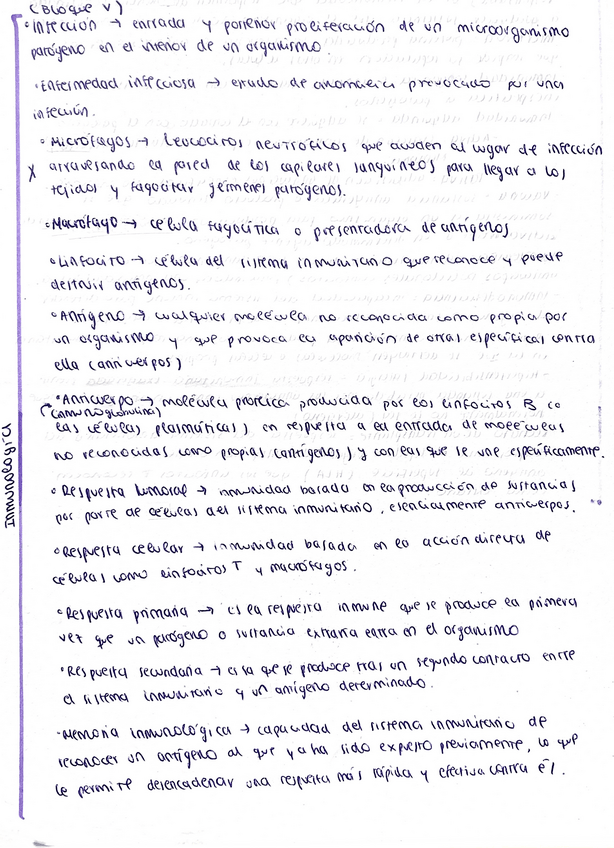 (Bloque V)
• Infección → entrada y posterior proliferación de un microorganismo
patógeno en el interior de un organismo.
• Enfermedad infecciosa → estado de anomalía provocado por una
infección.
• Micrófagos → Leucocitos neutrófilos que acuden al lugar de infección
X atravesando la pared de los capilares sanguíneos para llegar a los
tejidos y fagocitar gérmenes patógenos.
• Macrófago → célula fagocítica o presentadora de antígenos
• Linfocito → célula del sistema inmunitario que reconoce y puede
destruir antígenos.
• Antígeno → cualquier molécula no reconocida como propia por
un organismo y que provoca la aparición de otras específicas contra
ella (anticuerpos)
• Anticuerpo → molécula proteica producida por los linfocitos B (o
(inmunoglobulina)
las células plasmáticas), en respuesta a la entrada de moléculas
no reconocidas como propias (antígenos) y con las que se une específicamente.
• Respuesta humoral → inmunidad basada en la producción de sustancias
por parte de células del sistema inmunitario, esencialmente anticuerpos.
• Respuesta celular → inmunidad basada en la acción directa de
células como linfocitos T y macrófagos.
• Respuesta primaria → es la respuesta inmune que se produce la primera
vez que un patógeno o sustancia extraña entra en el organismo
• Respuesta secundaria → es la que se produce tras un segundo contacto entre
el sistema inmunitario y un antígeno determinado.
• Memoria inmunológica → capacidad del sistema inmunitario de
reconocer un antígeno al que ya ha sido expuesto previamente, lo que
le permite desencadenar una respuesta más rápida y efectiva contra él.
Inmunología